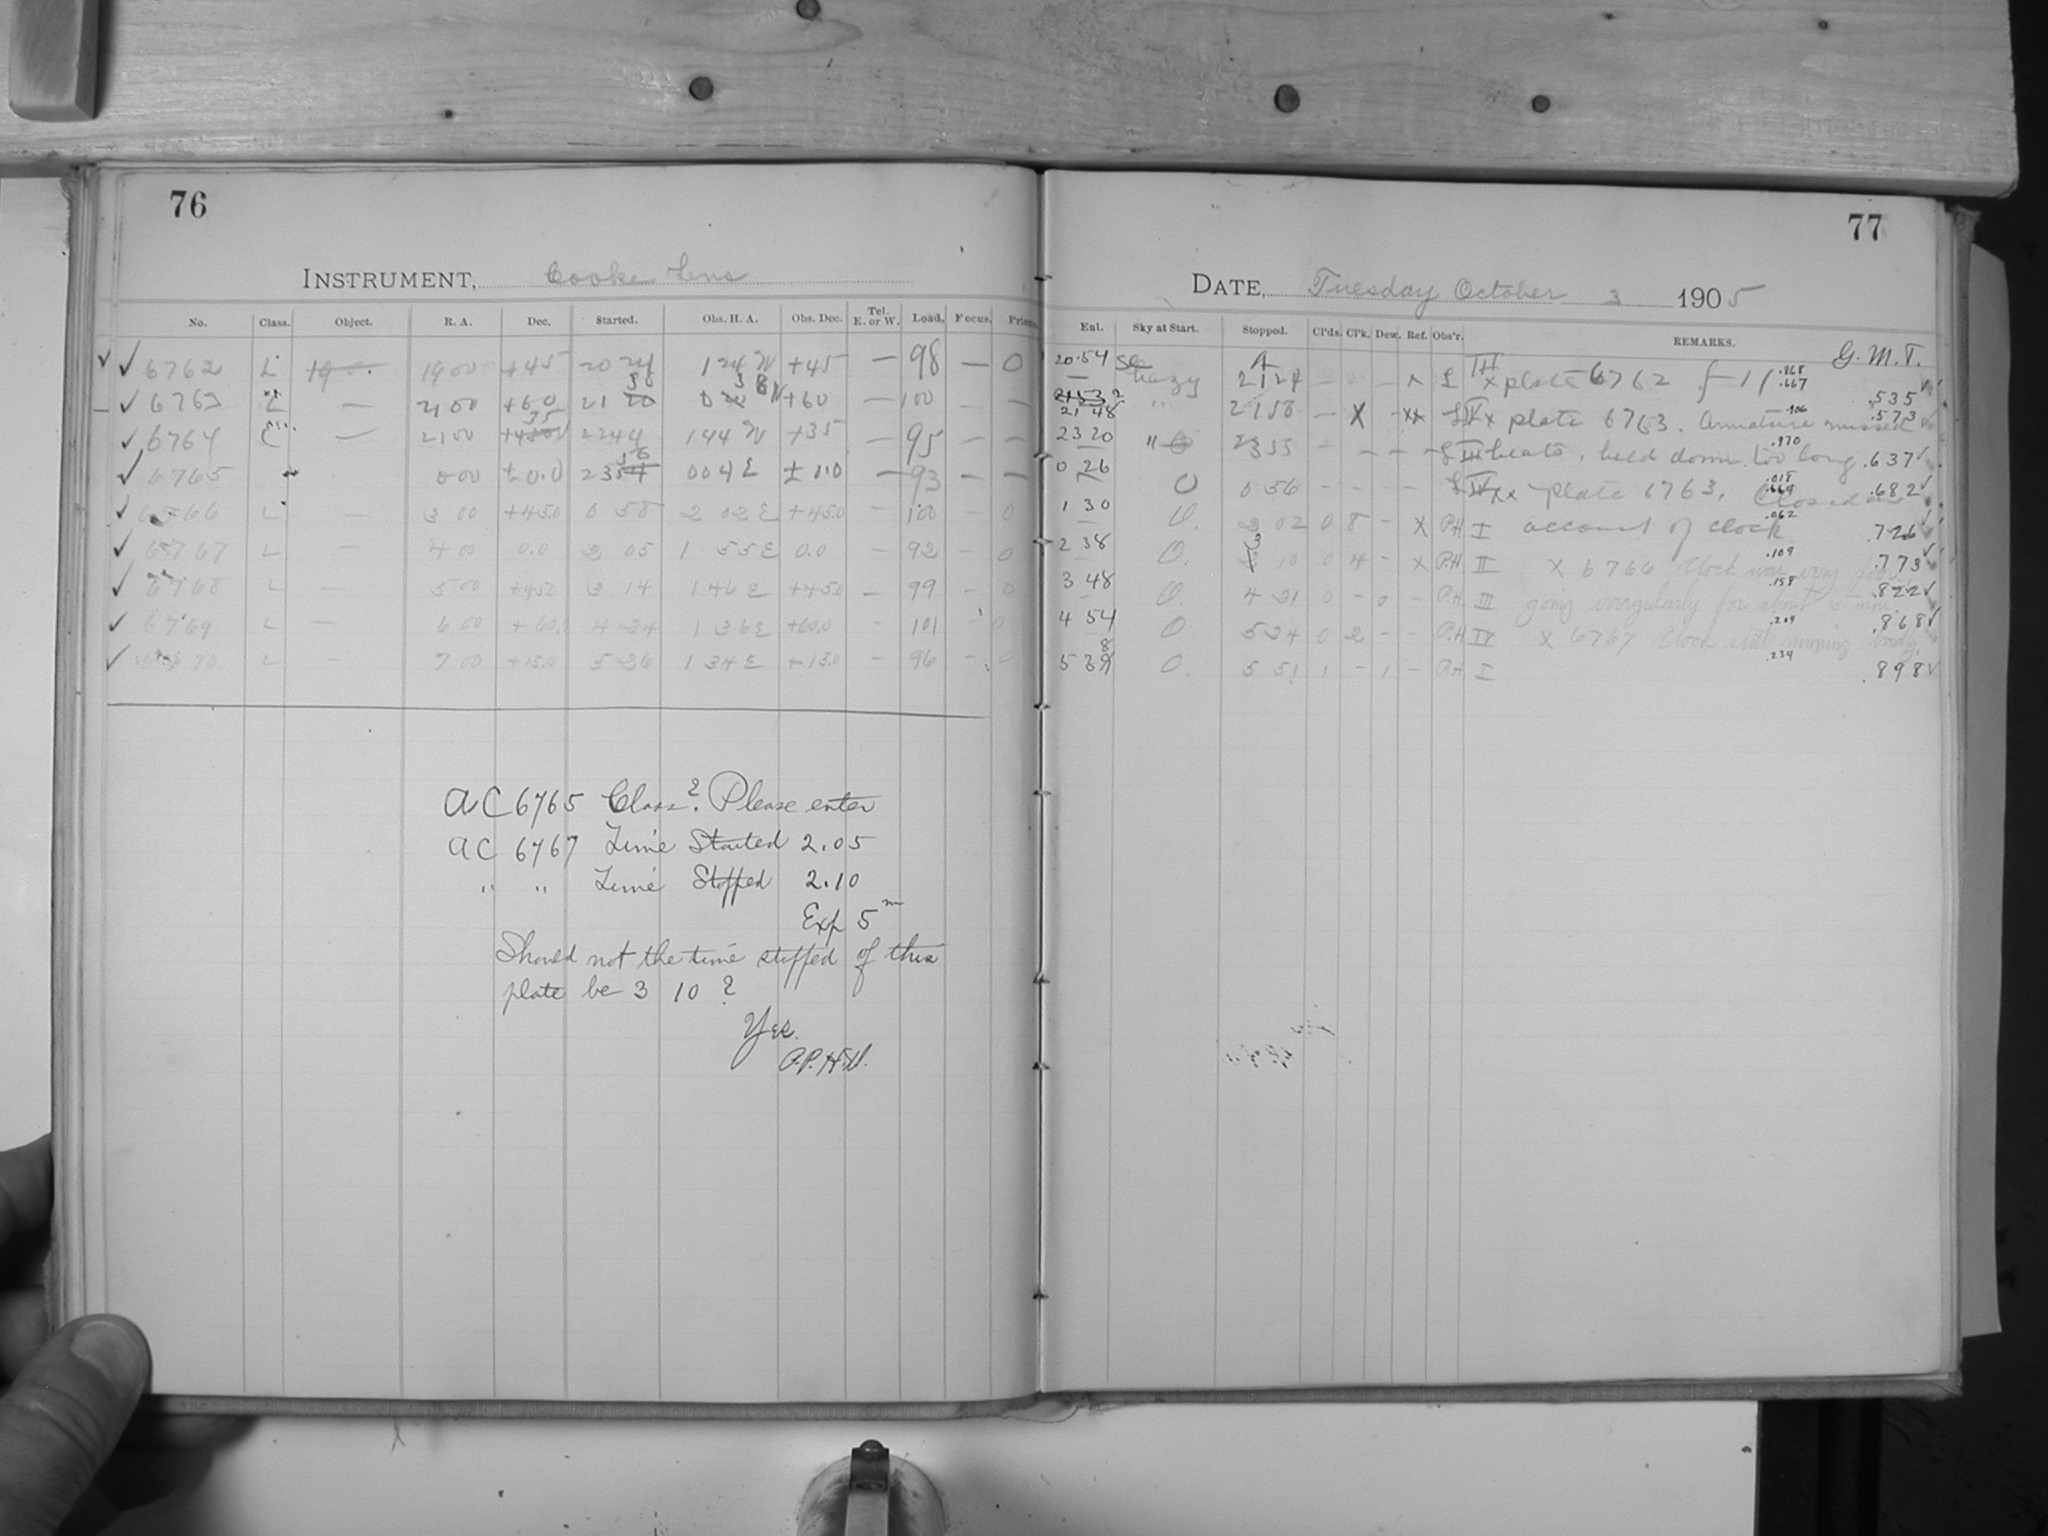 76
INSTRUMENT, Cooke Lens
No. Class. Object. R. A. Dec. Started. Obs. H. A. Obs. Dec. Tel. E. or W. Load. Focus. Prism
✓ ✓ 6762 L 19 0. 19 00 +45 20 24 1 24 W +45 — 98 — 0
✓ 6763 L — 21 00 +60 21 20 38 0 20 38 W +60 — 100 — —
✓ 6764 — 21 00 35 22 44 1 44 W +35 — 95 — —
✓ 6765 0 00 ± 0.0 23 56 0 04 E — 93 — —
✓ 6766 L — 3 00 +45.0 0 58 2 02 E +45.0 — 100 — 0
✓ 6767 L — 4 00 0.0 2 05 1 55 E 0.0 — 92 — 0
✓ 6768 L — 5 00 +45.0 3 14 1 46 E +45.0 — 99 — 0
✓ 6769 L — 6 00 +60. 4 24 1 36 E +60.0 — 101 — 0
✓ L — 7 00 +15.0 5 26 1 34 E +15.0 — 96 — 0
AC 6765 Class? Please enter
AC 6767 Time Started 2.05
" " Time Stopped 2.10
Exp 5 m
Should not the time stopped of this
plate be 3 10 ?
Yes.
77
DATE, Tuesday October 3 1905
Enl. Sky at Start. Stopped. Cl'ds. Cl'k. Dew. Ref. Obs'r. REMARKS.
G. M. T.
20 54 hazy 21 24 — — — L III x plate 6762 .868 .667 .535 ✓
21 48 " 21 58 — X — xx L x plate 6763. Armature missed .906 .573 ✓
23 20 " 23 55 — — — — L III beats, held down too long .970 .637 ✓
0 26 0 0 56 — — — — L xx plate 6763. Closed on .018 .682 ✓
1 30 0. 2 02 0 8 — X P.H. I account of clock .062 .726 ✓
2 38 0. 3 10 0 4 — X P.H. II X 6766 Clock was very .109 .773 ✓
3 48 0. 4 21 0 — 0 — P.H. III going irregularly for about 5 min. .158 .822 ✓
4 54 0 5 24 0 2 — — P.H. IV X 6767 Clock still running badly. .204 .868 ✓
5 38 0. 5 51 1 — 1 — P.H. I .234 .898 ✓